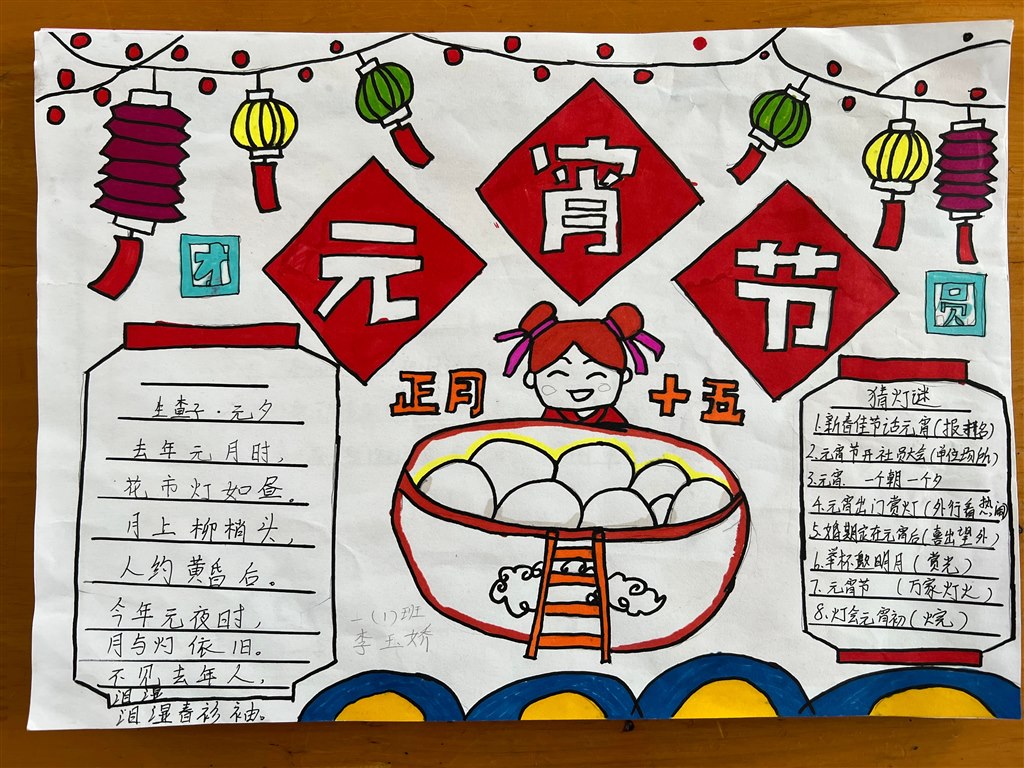 元宵节
团
圆
正月十五
生查子·元夕
去年元月时，
花市灯如昼。
月上柳梢头，
人约黄昏后。
今年元夜时，
月与灯依旧。
不见去年人，
泪湿
泪湿春衫袖。
一（1）班
李玉娇
猜灯谜
1.新春佳节话元宵（报
2.元宵节开社员大会（单位
3.元宵 一个朝一个夕
4.元宵出门赏灯（外行看热闹
5.婚期定在元宵后（喜出望外）
6.举杯邀明月（赏光）
7.元宵节 （万家灯火）
8.灯会元宵初（ ）